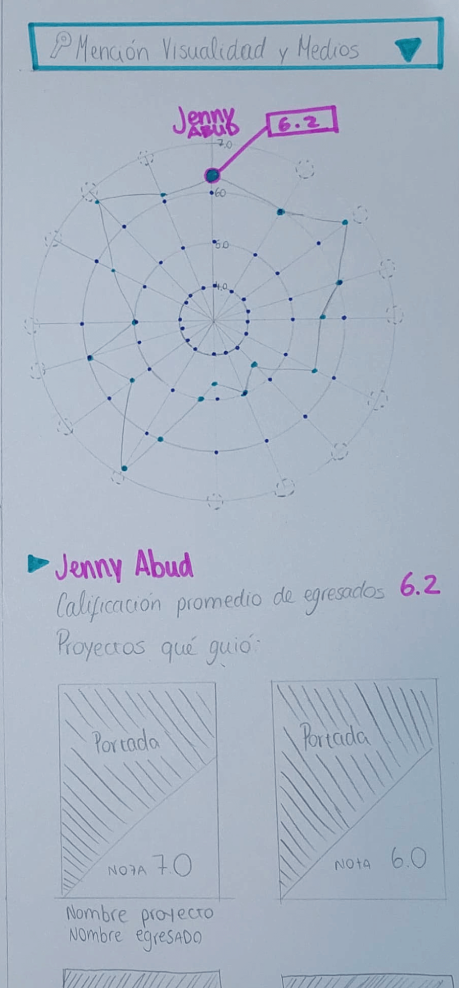 Mención Visualidad y Medios
Jenny
ABUD
6.2
7.0
6.0
5.0
4.0
Jenny Abud
Calificación promedio de egresados 6.2
Proyectos qué guió:
Portada
Portada
NOTA 7.0
NOTA 6.0
Nombre proyecto
Nombre egresado